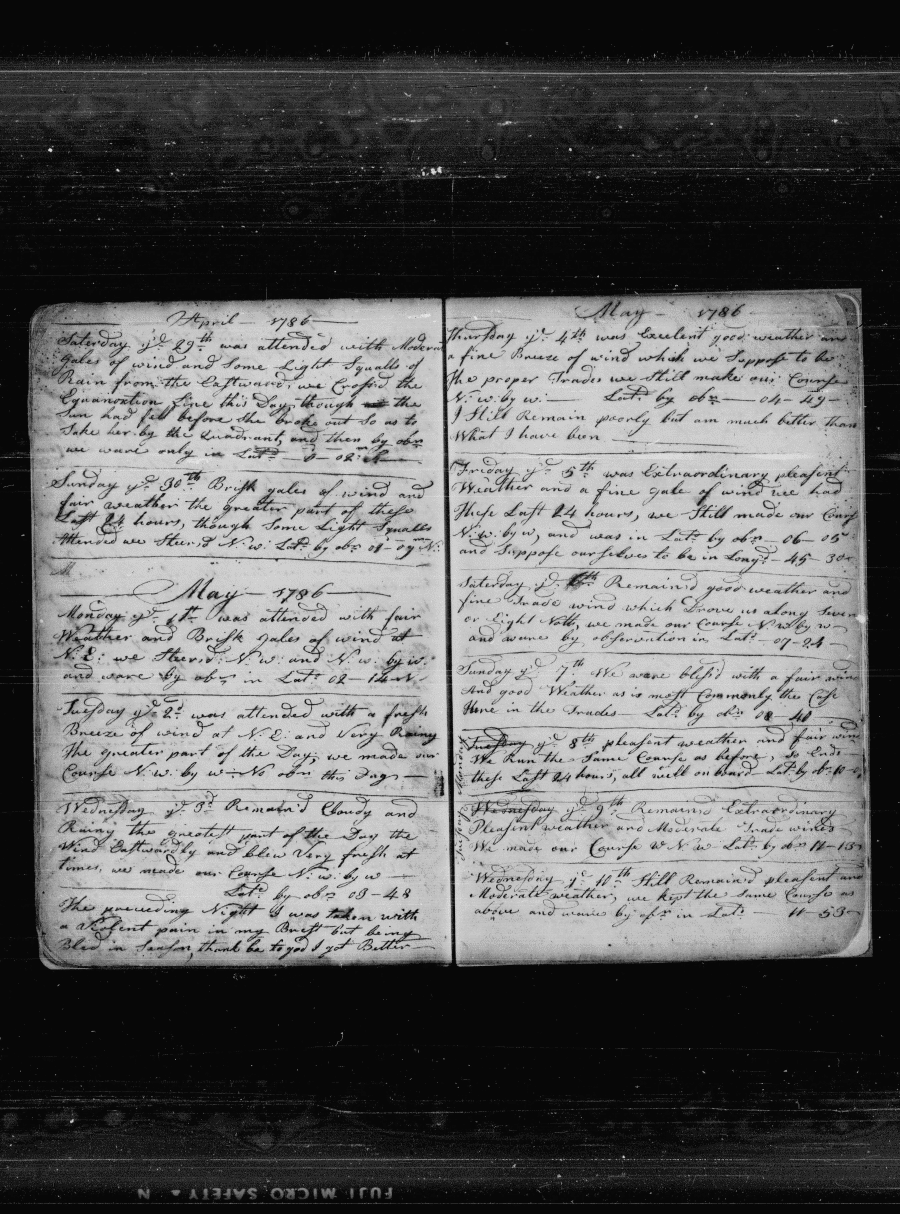 April — 1786
Saturday ye 29th was attended with Moderate
gales of wind and Some Light Squalls of
Rain from the Eastward, we Cross'd the
Equanoxtion Line this Day, though the
Sun had fell before She broke out So as to
take her by the Quadrant, and then by obn
we ware only in Latd — 0 — 02
Sunday ye 30th Brisk gales of wind and
fair weather the greater part of these
Last 24 hours, though Some Light Squalls
Attended we Steer'd N: w: Latd by obn 01 — 09 N:
May — 1786
Monday ye 1st was attended with fair
Weather and Brisk gales of wind at
N: E: we Steer'd N: w. and N. w. by w.
and ware by obn in Latd 02 — 14 — N
Tuesday ye 2d was attended with a fresh
Breeze of wind at N: E: and Very Rainy
the greater part of the Day, we made our
Course N: w: by w — No obn this Day —
Wednesday ye 3d Remain'd Cloudy and
Rainy the greatest part of the Day the
Wind Eastwardly and blew Very fresh at
times, we made our Course N: w. by w —
Latd by obn 03 — 48
The preceeding Night I was taken with
a Violent pain in my Brest but being
Bled in Season, thank be to god I got Better
May — 1786
Thursday ye 4th was Excelent good weather and
a fine Breeze of wind which we Suppose to be
the proper Trades we Still make our Course
N: w. by w: — Latd by obn — 04 — 49 —
I Still Remain poorly but am much better than
What I have been
Friday ye 5th was Extraordinary pleasent
Weather and a fine gale of wind we had
these Last 24 hours, we Still made our Course
N: w: by w, and was in Latd by obn — 06 — 05
and Suppose ourselves to be in Longd — 45 — 30
Saturday ye 6th Remain'd good weather and
fine Trade wind which Drove us along Seven
or Eight Nots, we made our Course N w by w —
and ware by observation in Latd — 07 — 24
Sunday ye 7th We ware bless'd with a fair wind
And good Weather as is most Commonly the Case
Here in the Trades — Latd by obn 08 — 40
Monday
Tuesday ye 8th pleasent weather and fair wind
We Run the Same Course as before, so Ends
these Last 24 hours, all well on board Latd by obn 10
Tuesday
Wednesday ye 9th Remain'd Extraordinary
Pleasent weather and Moderate Trade winds
We made our Course W N w Latd by obn 11 — 13
Wednesday ye 10th Still Remain'd pleasent and
Moderate weather, we kept the Same Course as
above and ware by obn in Latd — 11 — 53
FUJI MICRO SAFETY ▲ N